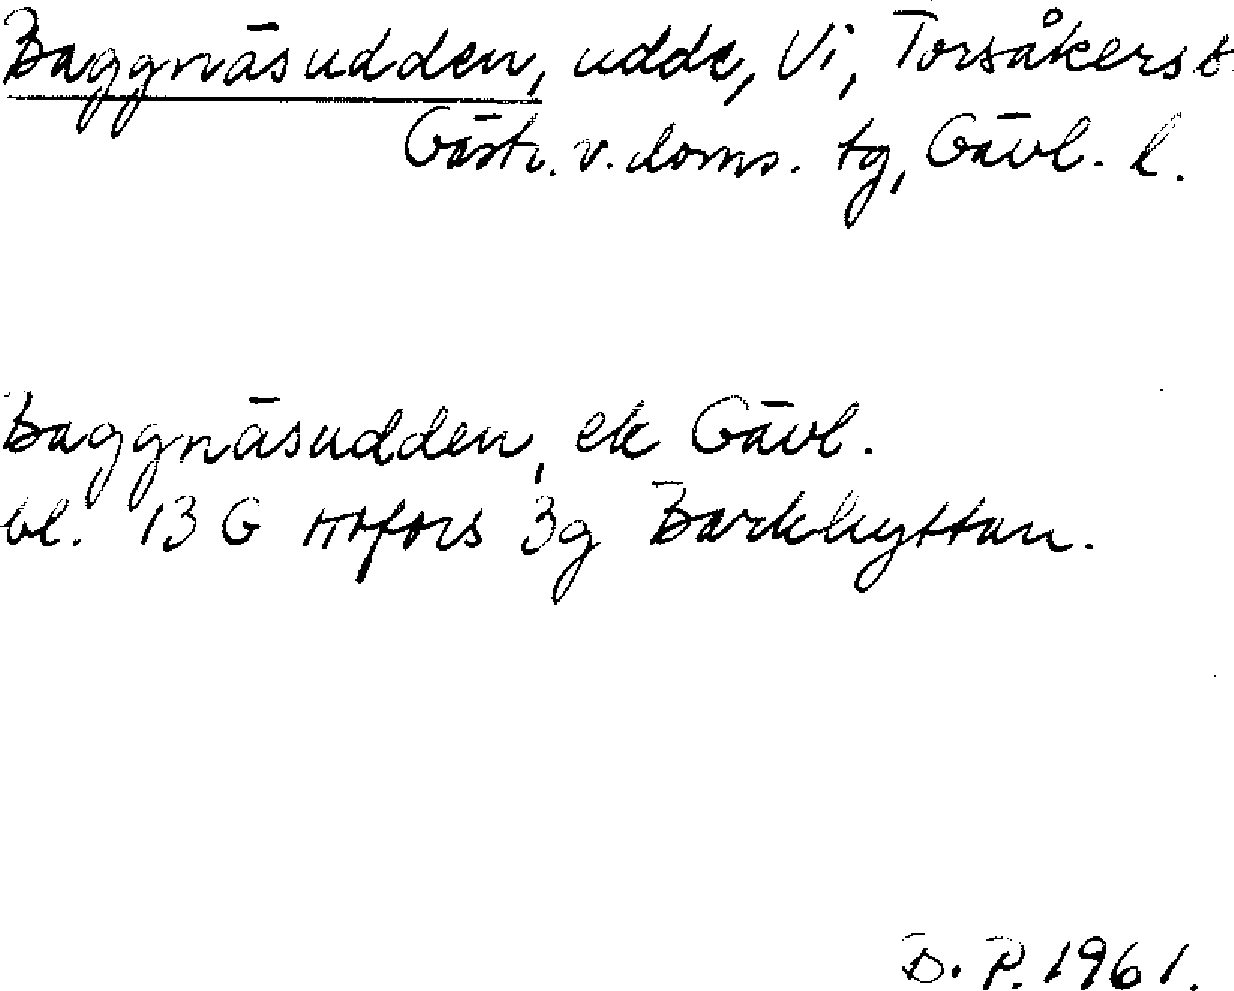 Baggnäsudden, udde, Vi, Torsåkers t
Gästr. v. doms. tg, Gävl. l.
Baggnäsudden, ek Gävl.
bl. 13 G Hofors 3g Barkhyttan.
B. P. 1961.